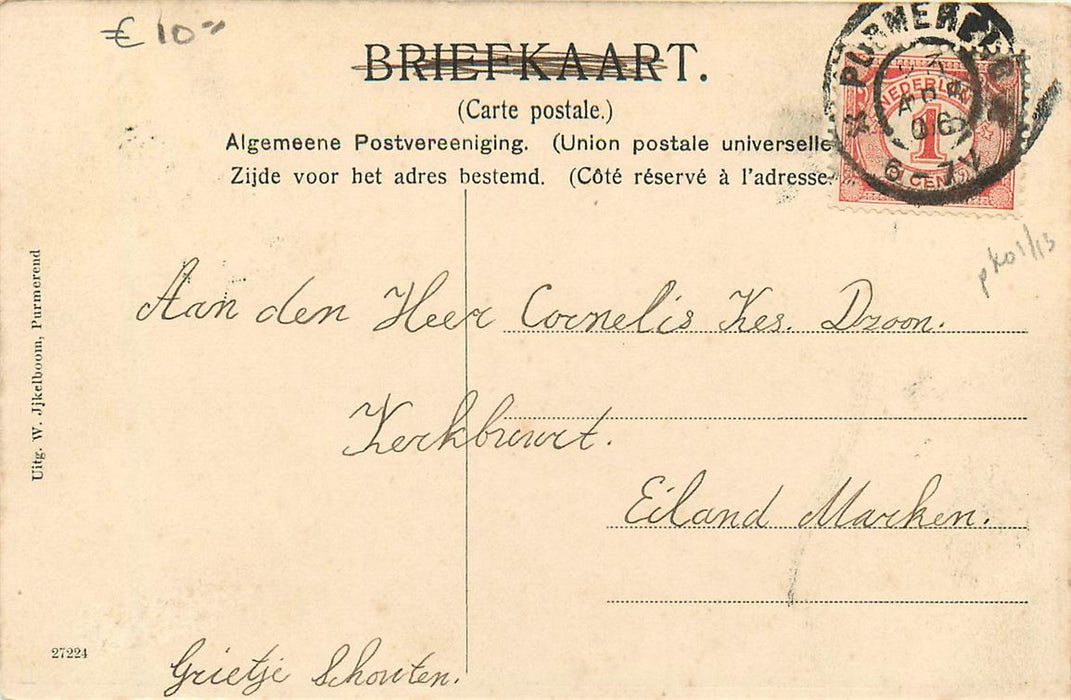 € 10
BRIEFKAART.
(Carte postale.)
Algemeene Postvereeniging. (Union postale universelle
Zijde voor het adres bestemd. (Côté réservé à l'adresse.
PURMEREND
APR
06
6-7V
NEDERLAND
1
CENT
Aan den Heer Cornelis Kes. Dzoon.
Kerkbuurt.
Eiland Marken.
Grietje Schouten.
Uitg. W. Jjkelboom, Purmerend
27224